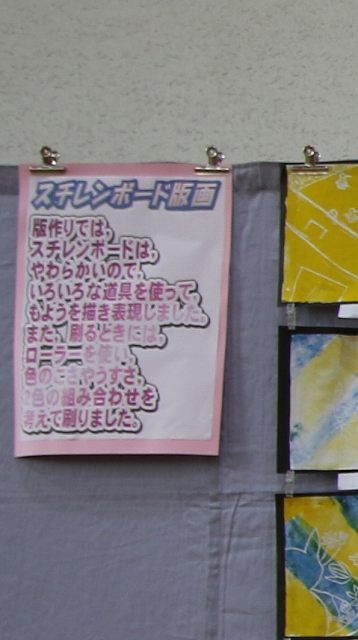 スチレンボード版画
版作りでは、
スチレンボードは、
やわらかいので、
いろいろな道具を使って、
もようを描き表現しました。
また、刷るときには、
ローラーを使い、
色のこさやうすさ、
2色の組み合わせを
考えて刷りました。